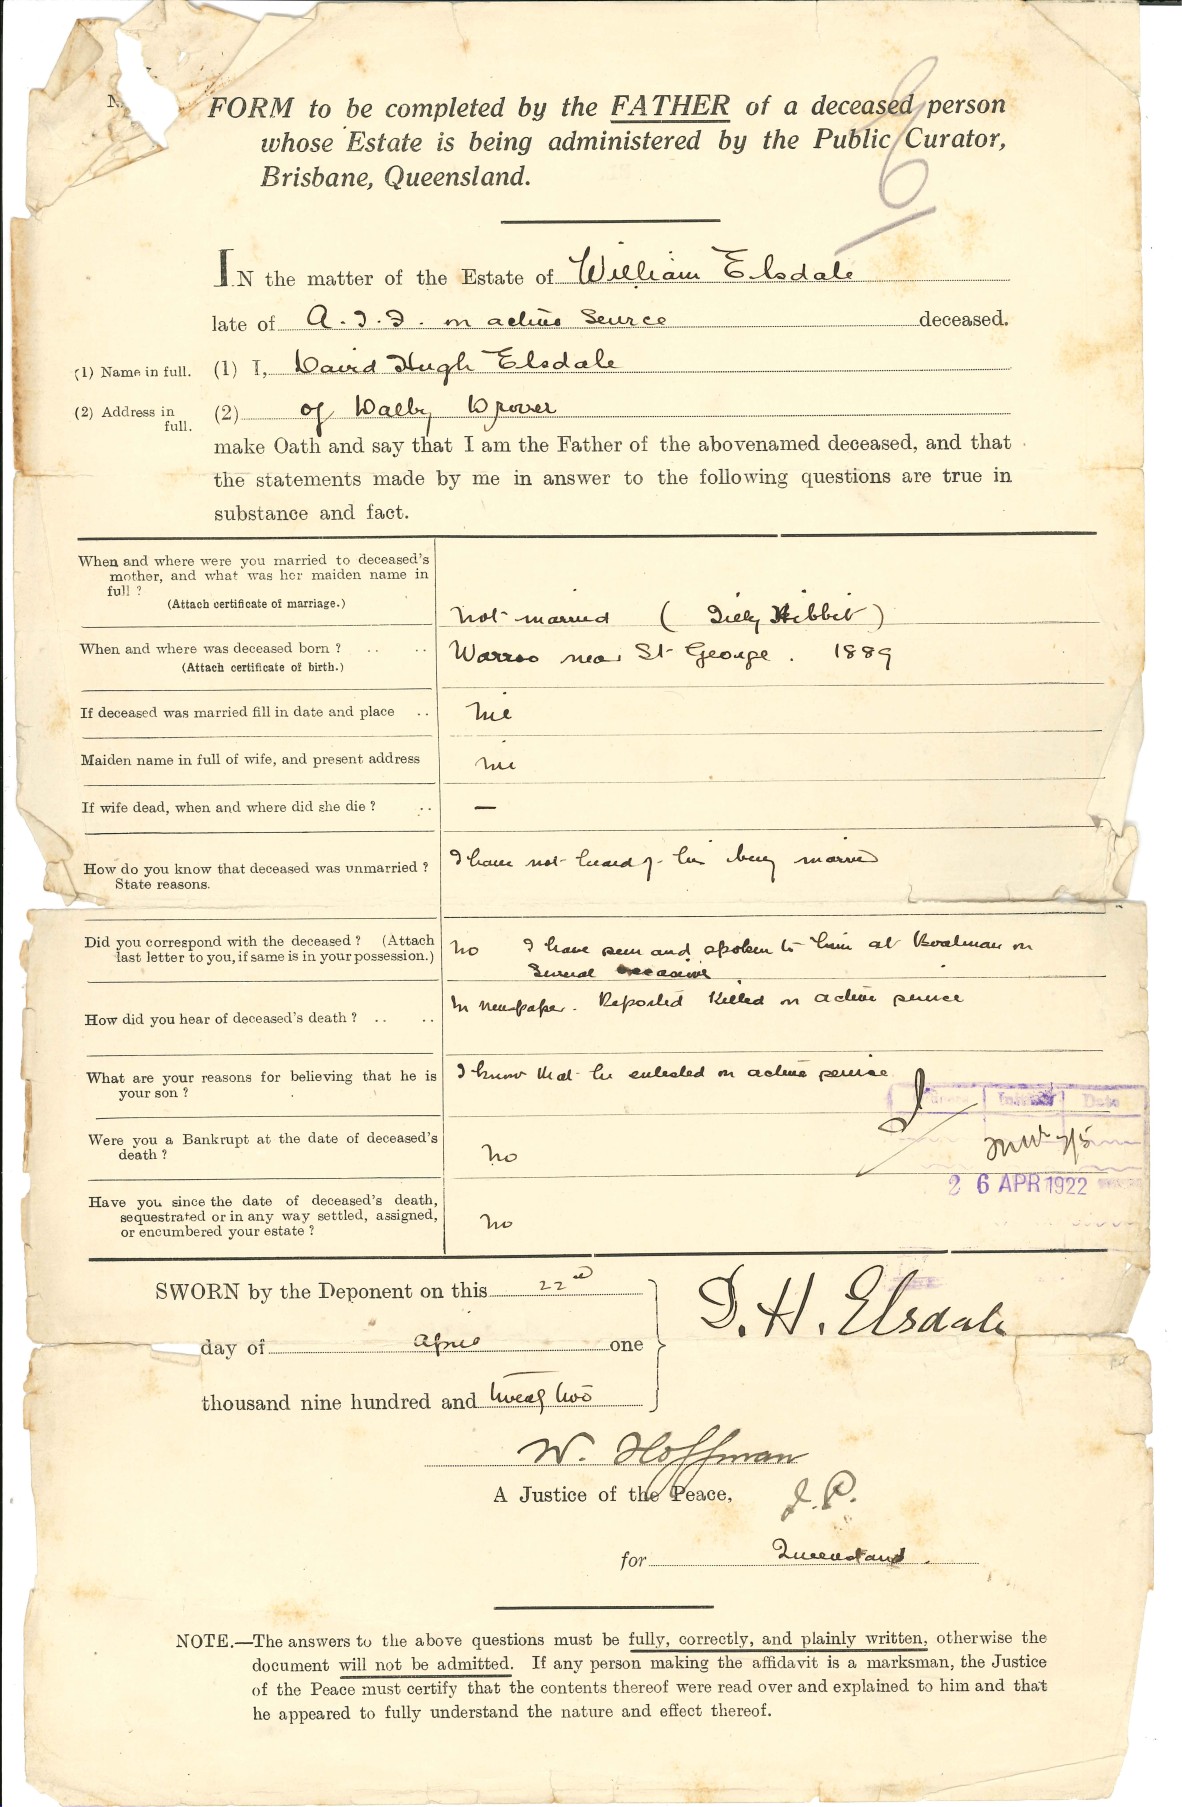 FORM to be completed by the FATHER of a deceased person
whose Estate is being administered by the Public Curator,
Brisbane, Queensland.
6
IN the matter of the Estate of William Elsdale
late of A.I.F. on active Service deceased.
(1) Name in full. (1) I, David Hugh Elsdale
(2) Address in full. (2) of Dalby Drover
make Oath and say that I am the Father of the abovenamed deceased, and that
the statements made by me in answer to the following questions are true in
substance and fact.
When and where were you married to deceased's
mother, and what was her maiden name in
full ?
(Attach certificate of marriage.)
Not married ( Hibbit )
When and where was deceased born ? .. ..
(Attach certificate of birth.)
Warroo near St George. 1889
If deceased was married fill in date and place ..
Nil
Maiden name in full of wife, and present address
Nil
If wife dead, when and where did she die ? ..
—
How do you know that deceased was unmarried ?
State reasons.
I have not heard of his being married
Did you correspond with the deceased ? (Attach
last letter to you, if same is in your possession.)
No I have seen and spoken to him at Boatman on
Several occasions
How did you hear of deceased's death ? .. ..
In newspaper. Reported Killed on active service
What are your reasons for believing that he is
your son ?
I know that he enlisted on active service.
Initials Date
7/5
26 APR 1922
Were you a Bankrupt at the date of deceased's
death ?
No
Have you since the date of deceased's death,
sequestrated or in any way settled, assigned,
or encumbered your estate ?
No
SWORN by the Deponent on this 22nd
day of April one
thousand nine hundred and twenty two
D. H. Elsdale
W. Hoffman
A Justice of the Peace, J.P.
for Queensland.
NOTE.—The answers to the above questions must be fully, correctly, and plainly written, otherwise the
document will not be admitted. If any person making the affidavit is a marksman, the Justice
of the Peace must certify that the contents thereof were read over and explained to him and that
he appeared to fully understand the nature and effect thereof.